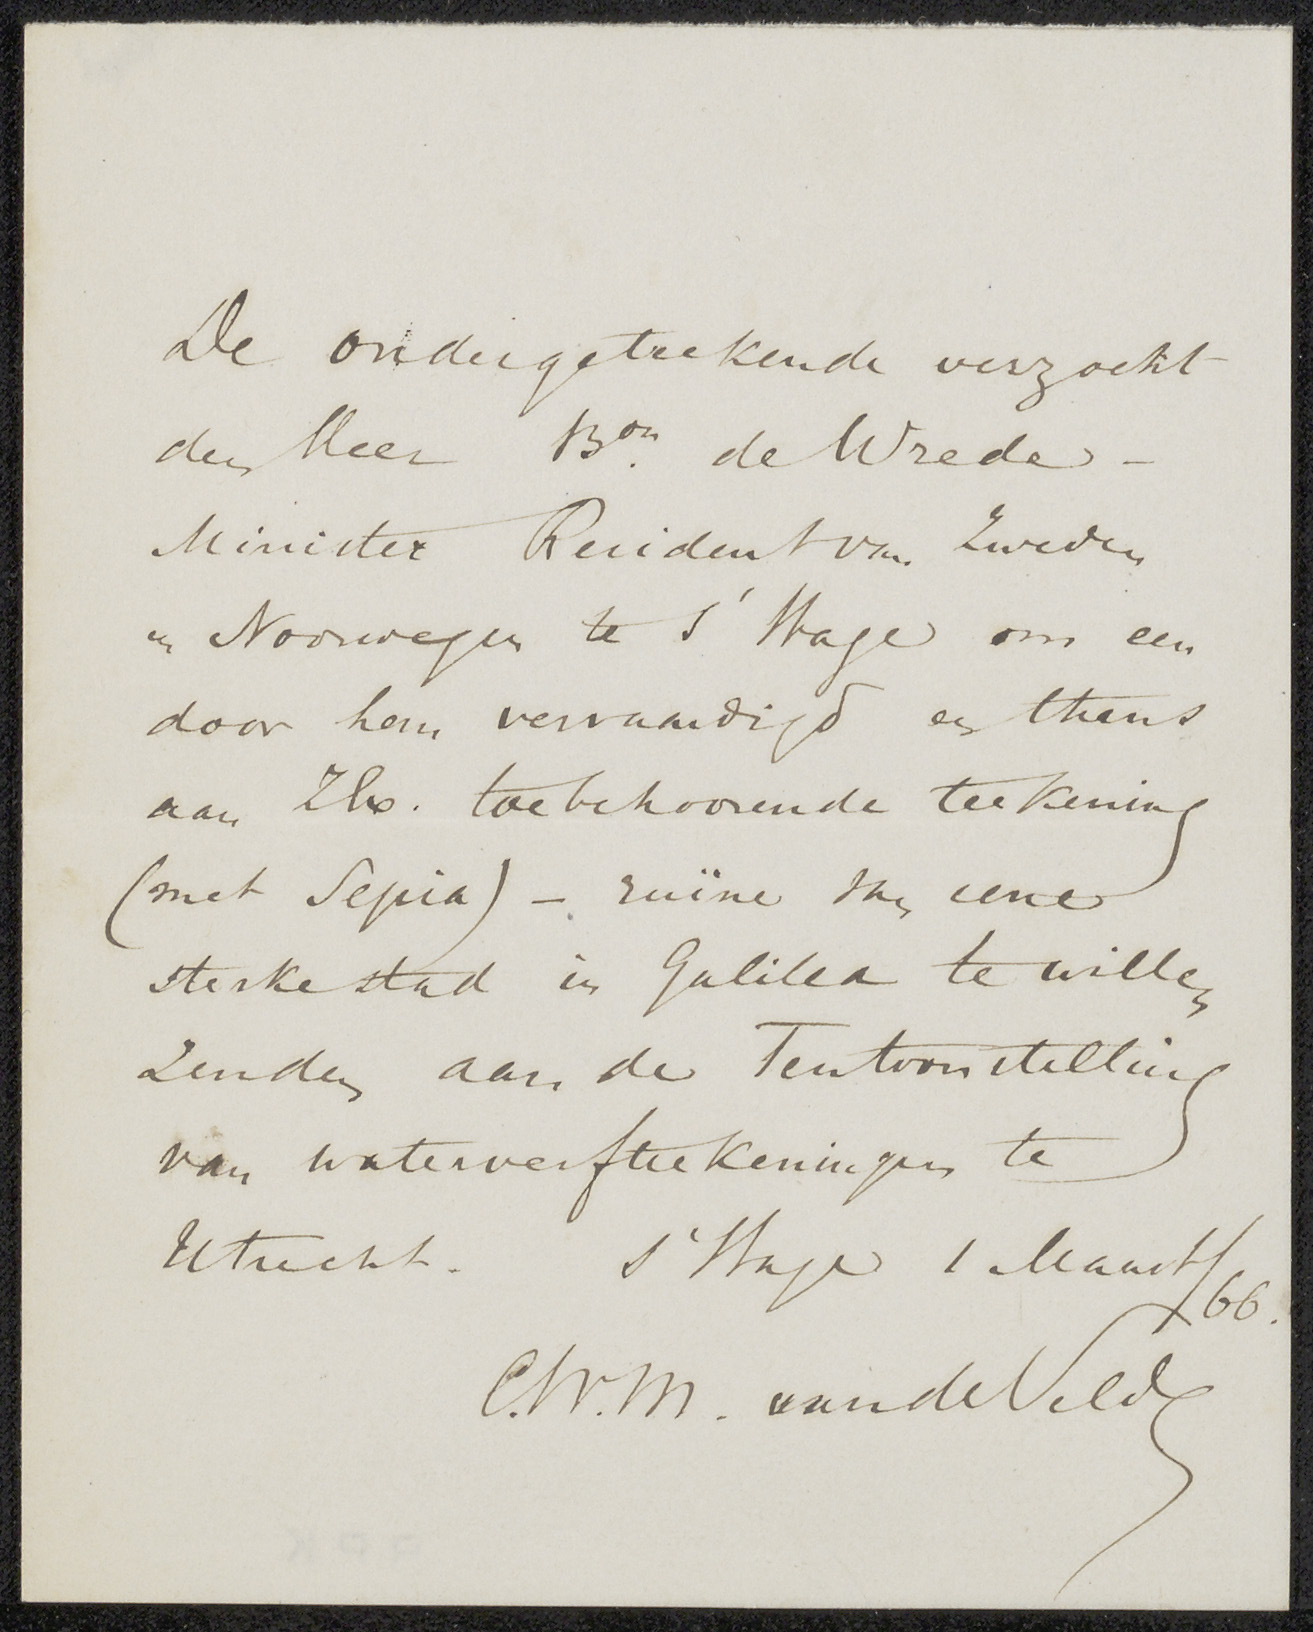 De ondergeteekende verzoekt
den Heer Bon. de Wrede -
Minister Resident van Zweden
en Noorwegen te s' Hage om een
door hem vervaardigd en thans
aan ZEx. toebehoorende teekening
(met Sepia) - ruïne van eene
sterke stad in Galilea te willen
zenden aan de Tentoonstelling
van waterverfteekeningen te
Utrecht. s' Hage 1 Maart/66.
C.W.M. van de Velde